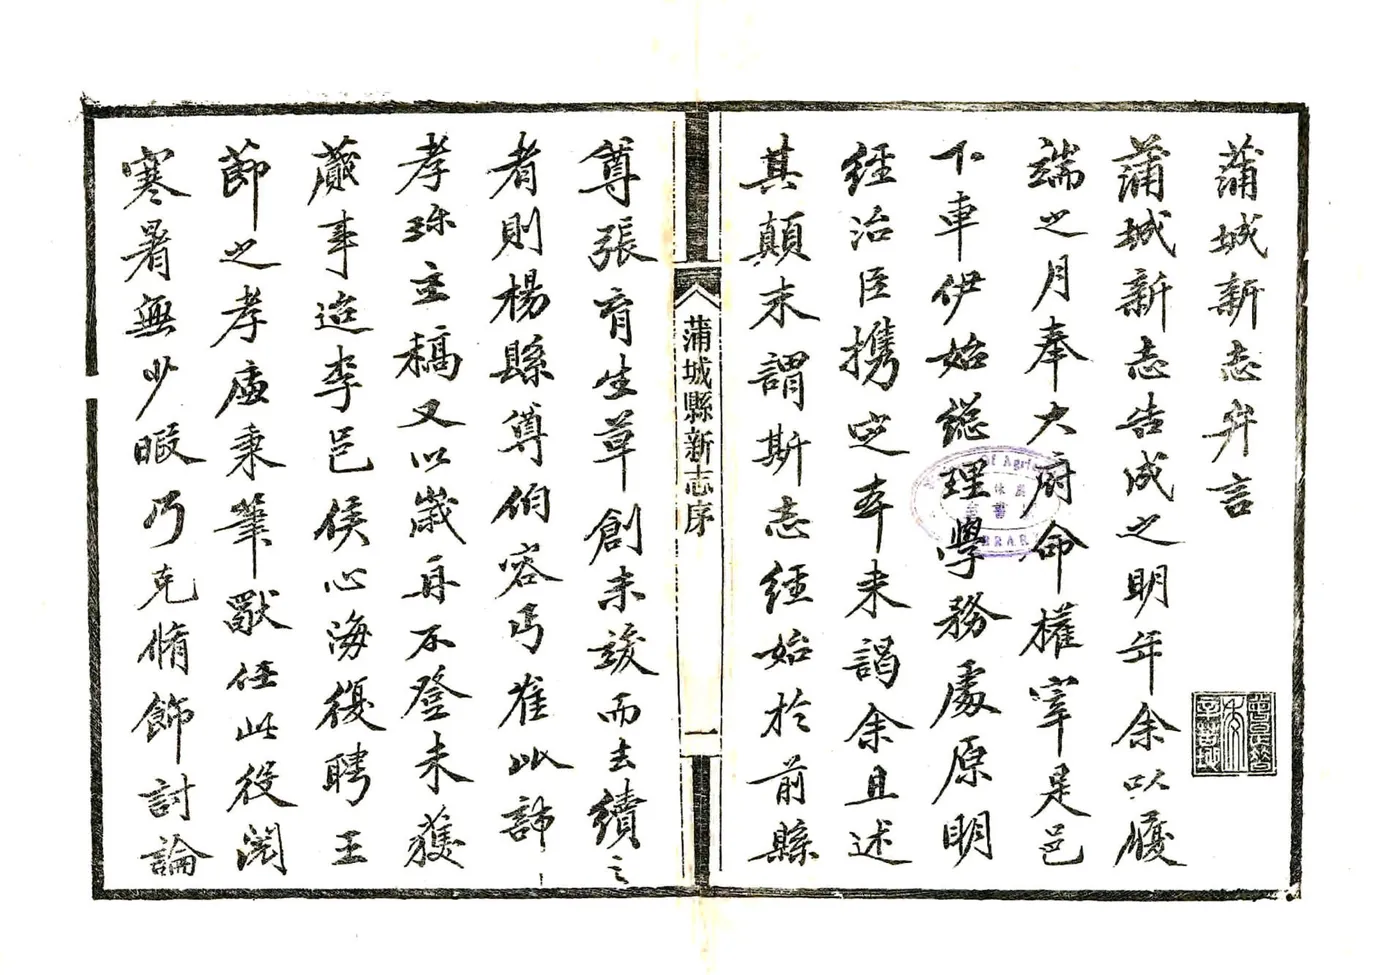 蒲城新志弁言
蒲城新志告成之明年余以履
端之月奉大府命權宰是邑
下車伊始總理學務處原明
經治臣攜定本来謁余且述
其顛末謂斯志經始於前縣
蒲城縣新志序
一
尊張育生草創未竣而去續之
者則楊縣尊伯容丐崔比部
孝珎主稿又以歲再不登未獲
蕆事迨李邑侯心海復聘王
莭之孝廉秉筆任此役閲
寒暑無少暇乃克脩飾討論